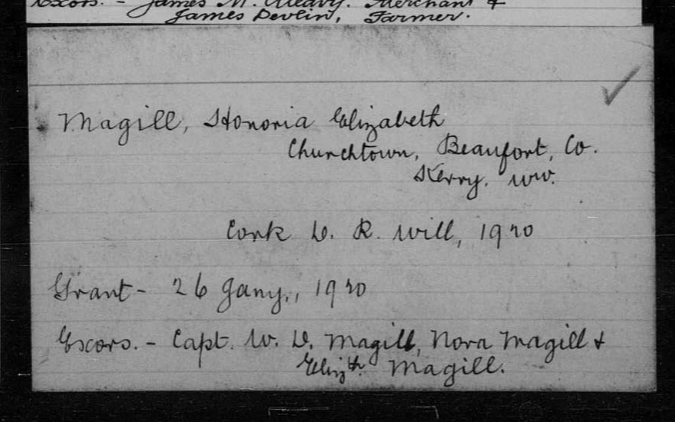 Excors. - James M. McLeavy. Merchant &
James Devlin, Farmer.
Magill, Honoria Elizabeth
Churchtown, Beaufort, Co.
Kerry. ww.
Cork D. R. Will, 1920
Grant - 26 Jany., 1920
Excors. - Capt. W. D. Magill, Nora Magill &
Elizth. Magill.